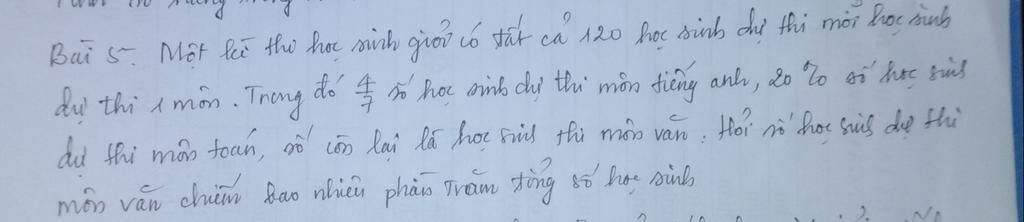 Bài 5. Một kì thi học sinh giỏi có tất cả 120 học sinh dự thi mỗi học sinh
dự thi 1 môn. Trong đó 4/7 số học sinh dự thi môn tiếng anh, 20% số học sinh
dự thi môn toán, số còn lại là học sinh thi môn văn. Hỏi số học sinh dự thi
môn văn chiếm bao nhiêu phần trăm tổng số học sinh